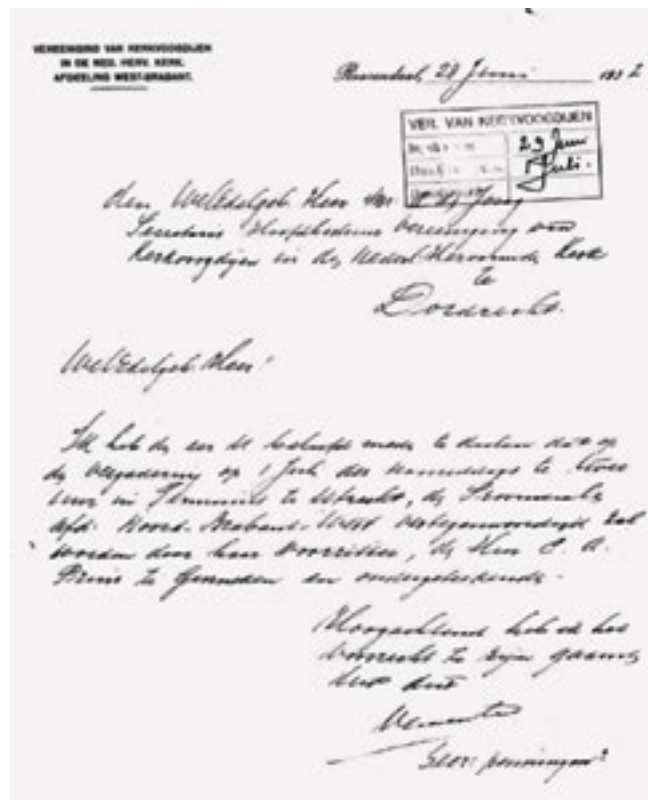 VEREENIGING VAN KERKVOOGDIJEN
IN DE NED. HERV. KERK.
AFDEELING WEST-BRABANT.
28 Juni 1932
VER. VAN KERKVOOGDIJEN
29 Juni
Juli.
den WelEdelgeb. Heer de Jong
Secretaris Hoofdbestuur Vereeniging van
Kerkvoogdijen in de Nederl. Hervormde Kerk
te
Dordrecht.
WelEdelgeb. Heer!
Ik heb de eer U beleefd mede te deelen dat op
de vergadering op 1 Juli des namiddags te twee
uur in Terminus te Utrecht, de Provinciale
afd. Noord-Brabant-West vertegenwoordigd zal
worden door haar voorzitter, de Heer E. A.
te en ondergeteekende.
Hoogachtend heb ik het
voorrecht te zijn
Secr. penningmr